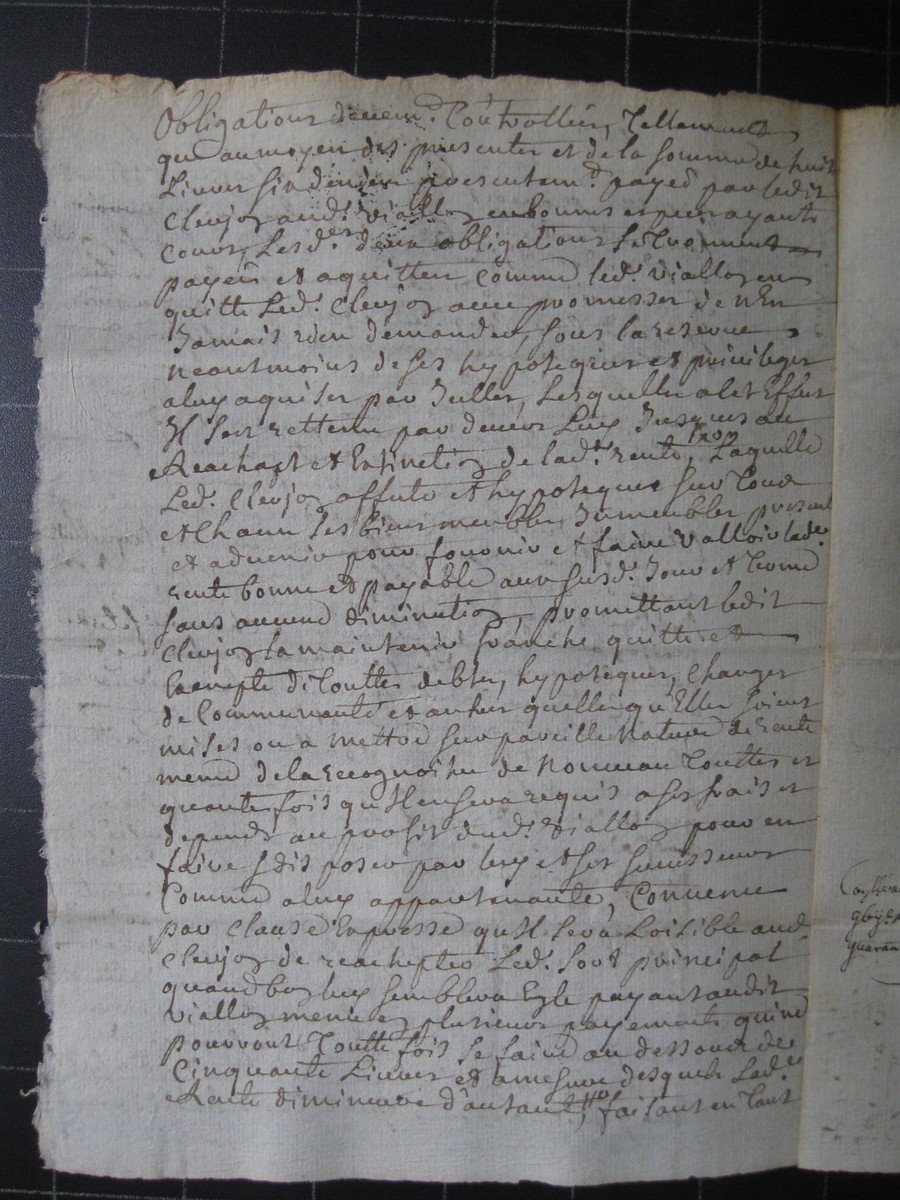 Obligations deuem.t Controllées, Tellement
qu'au moyen des presentes et de la somme de huit
Liures six deniers presentem.t payéé par ledit
Cleujoz aud.t Vialloz en bonnes especes ayants
cours, Lesd.es deux obligations se trouuent
payeés et aquitteés comme led.t Vialloz en
quitte Led.t Cleujoz auec promesses de n'En
Jamais rien demander, sous la reserue
neantmoins de ses hypoteques et priuileges
a luy aquises par Icelles, Lesquelles a cet Effect
Il s'est rettenu par deuers Luy Jusques au
Reachapt et Extinction de lad.te rente, Laquelle
Led.t Cleujoz affecte et hypoteque sur Tous
et Chacun ses biens meubles Immeubles presents
et aduenir pour fournir et faire Valloir lad.te
rente bonne et payable aux susd.t Jour et terme
sans aucune diminution, promettant ledit
Cleujoz la maintenir franche quitte et
Exempte de Touttes debtes, hypoteques, Charges
de Communauté et autres quelles qu'Elles soient
mises ou a mettre sur pareille Nature de rente
meme de la recognoitre de Nouueau Touttes et
quantes fois qu'Il en sera requis a ses frais et
depends au profit dud.t Vialloz pour en
faire et disposer par luy et ses successeurs
Comme a luy appartenante, Conuenu
par Clause Expresse qu'Il sera Loisible aud.t
Cleujoz de reachepter Led.t Sort principal
quand bon luy semblera En le payant audit
Vialloz meme en plusieurs payements qui ne
pourront Toutte fois se faire au dessous de
Cinquante Liures et a mesure desquels Lad.te
Rente diminuera d'autant, faisant en Tout